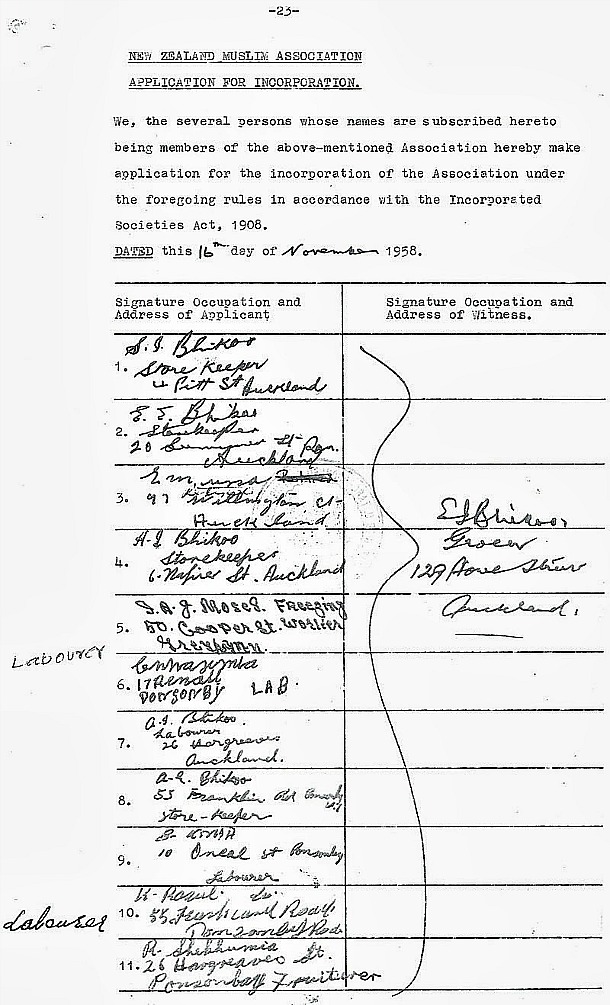 -23-
NEW ZEALAND MUSLIM ASSOCIATION
APPLICATION FOR INCORPORATION.
We, the several persons whose names are subscribed hereto
being members of the above-mentioned Association hereby make
application for the incorporation of the Association under
the foregoing rules in accordance with the Incorporated
Societies Act, 1908.
DATED this 16th day of November 1958.
Signature Occupation and
Address of Applicant
Signature Occupation and
Address of Witness.
S.I. Bhikoo
1. Store Keeper
4 Pitt St Auckland
E. I. Bhikoo
2. Storekeeper
20 St Pon.
Auckland
3. 97 Wellington St
Auckland
A.I Bhikoo
Storekeeper
4. 6. Napier St. Auckland
S.A.J. Moses. Freezing
5. 50. Cooper St. Worker
Labourer
6. 17
PONSONBY LAB.
A.I. Bhikoo.
Labourer
7. 26 Hargreaves
Auckland.
Bhikoo
8. 55 Franklin Rd Ponsonby
Store-keeper
9. 10 Oneal st Ponsonby
Labourer
K. Rasul.
Labourer
10. 55 Road
Ponsonby
R. Shekhumia
11. 26 Hargreaves St.
Ponsonby Fruiturer
E I Bhikoo,
Grocer
129 Howe Street
Auckland.